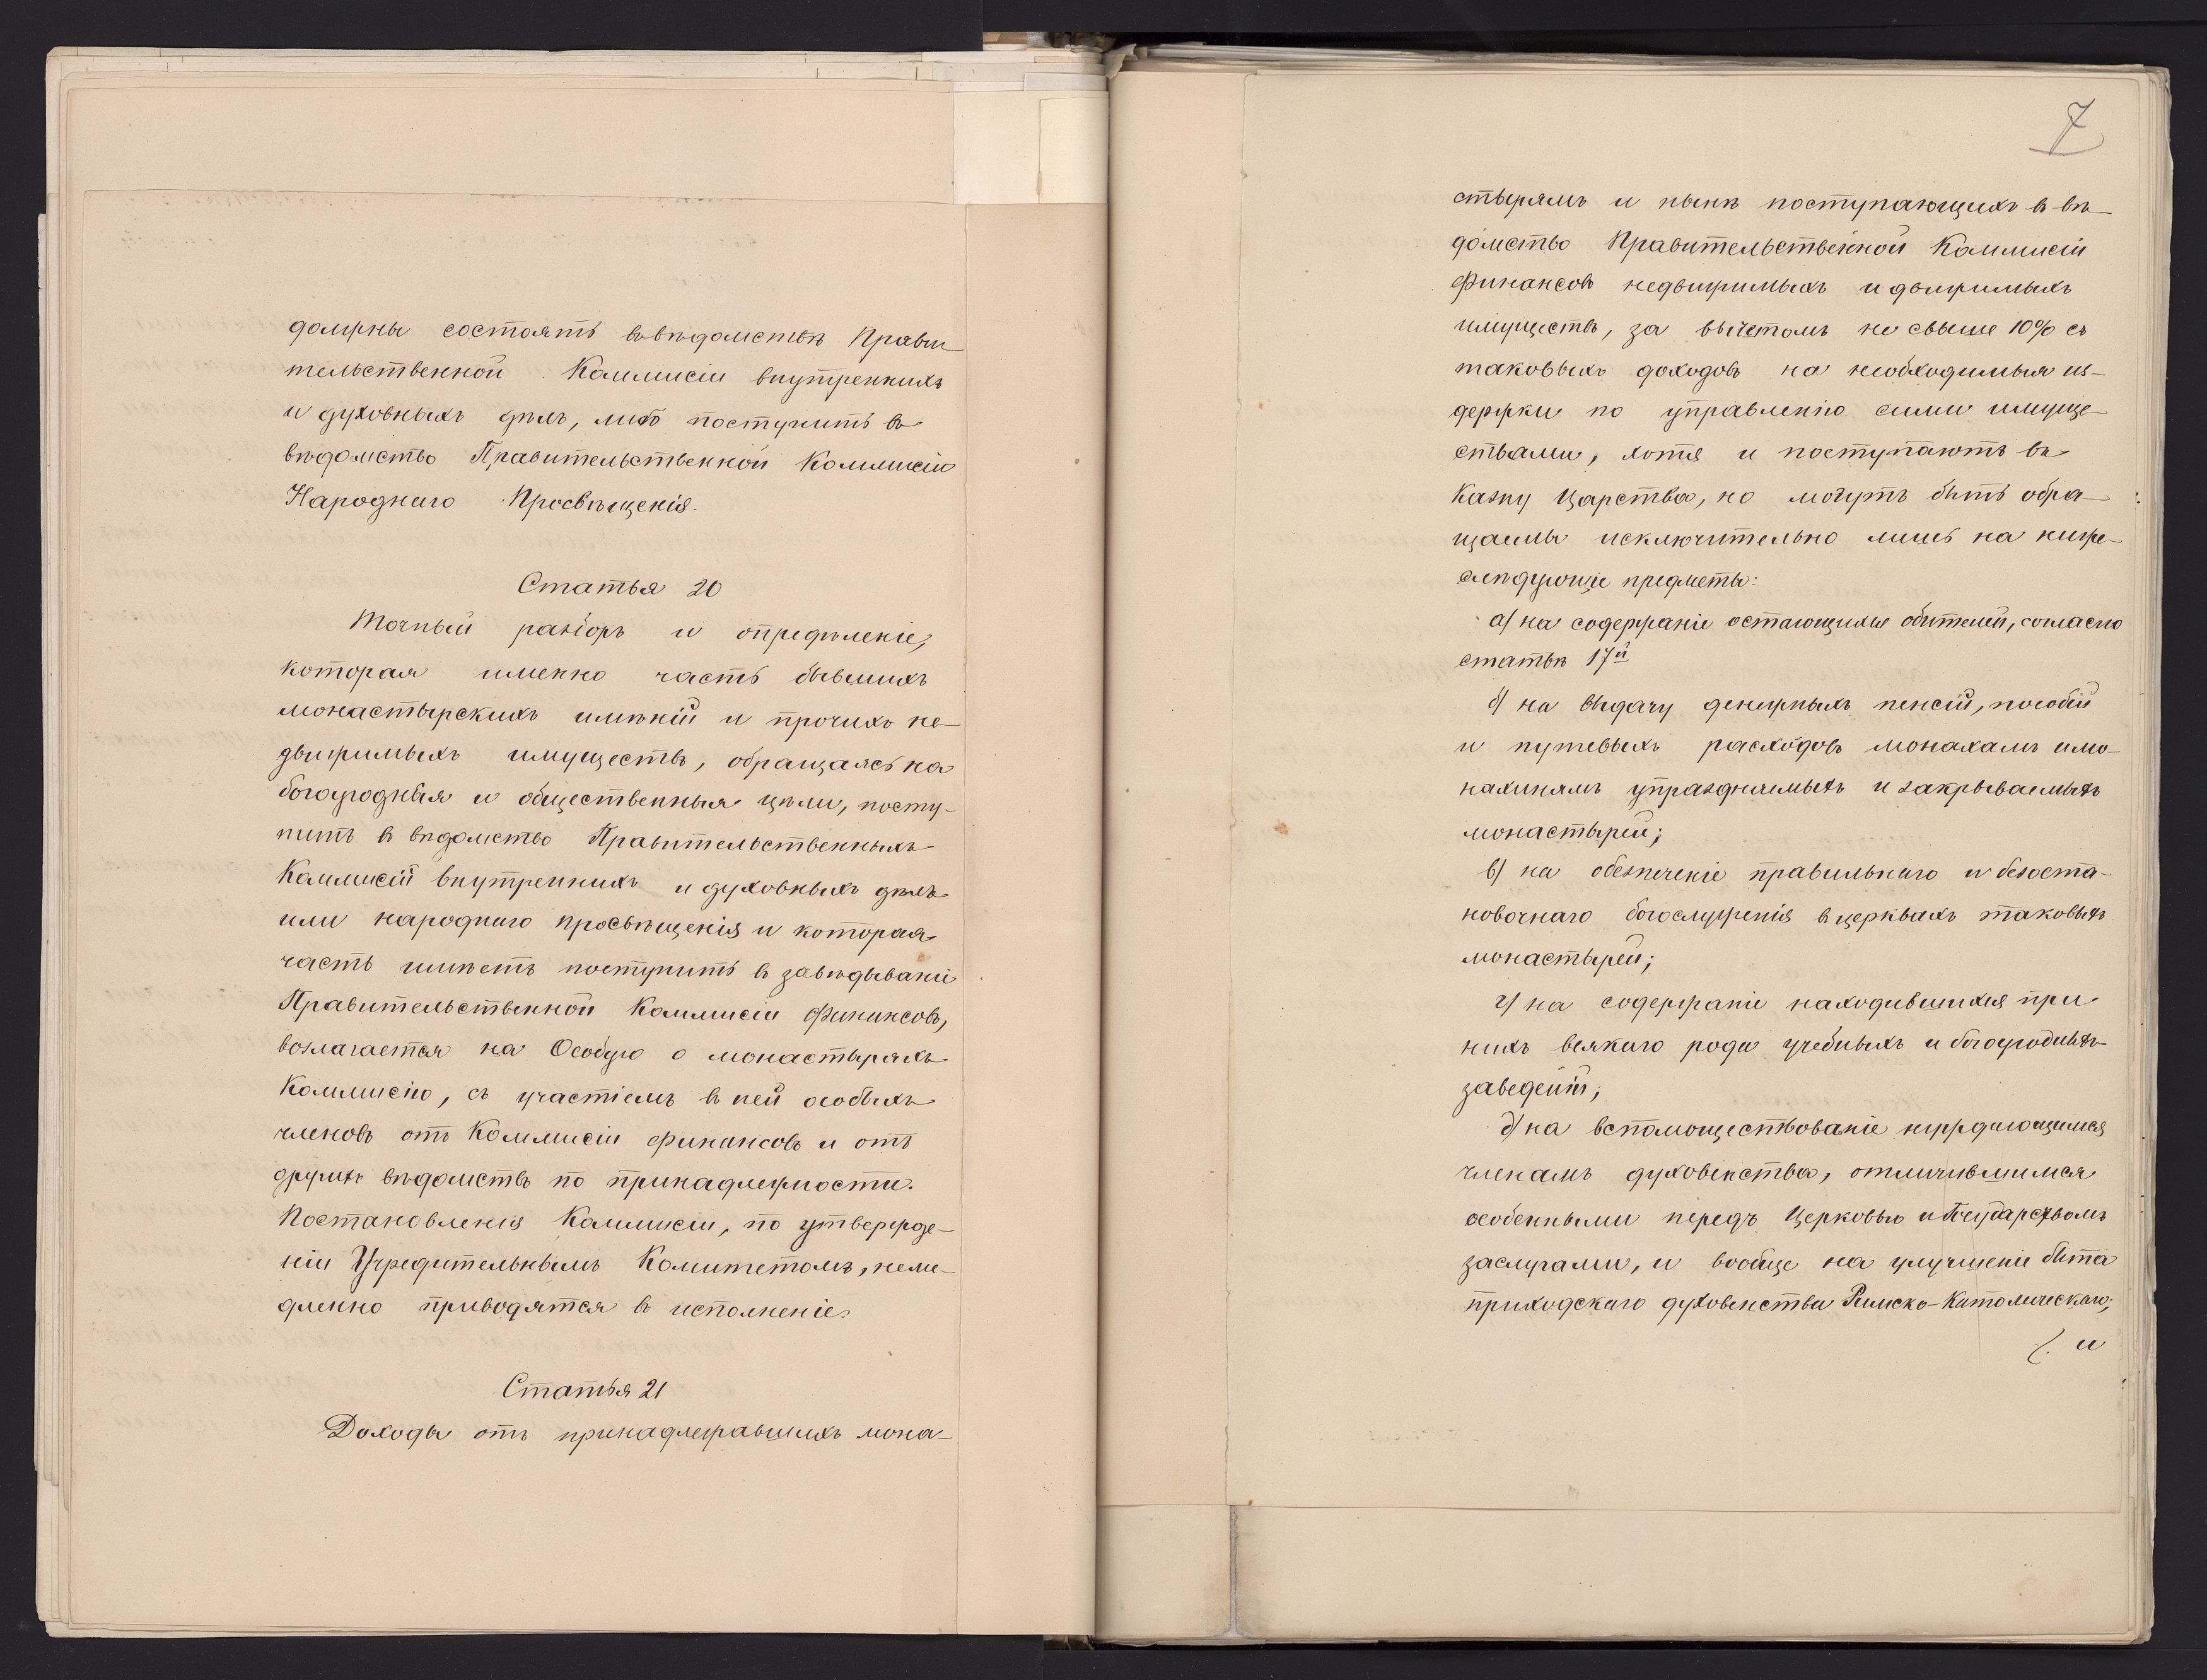 должны состоять въ вѣдомствѣ Прави
тельственной Коммисіи внутреннихъ
и духовныхъ дѣлъ, либо поступить въ
вѣдомство Правительственной Коммисіи
Народнаго Просвѣщенія.
Статья 20
Точный разборъ и опредѣленіе,
которая именно часть бывшихъ
монастырскихъ имѣній и прочихъ не-
движимыхъ имуществъ, обращаясь на
богоугодныя и общественныя цѣли, посту-
питъ въ вѣдомство Правительственныхъ
Коммисій внутреннихъ и духовныхъ дѣлъ
или народнаго просвѣщенія и которая
часть имѣетъ поступить въ завѣдываніе
Правительственной Коммисіи Финансовъ,
возлагается на Особую о монастыряхъ
Коммисію, съ участіемъ въ ней особыхъ
членовъ отъ Коммисіи финансовъ и отъ
другихъ вѣдомствъ по принадлежности.
Постановленія Коммисіи, по утвержде-
ніи Учредительнымъ Комитетомъ, неме-
дленно приводятся въ исполненіе.
Статья 21
Доходы отъ принадлежавшихъ мона-
7
стырямъ и нынѣ поступающихъ въ вѣ-
домство Правительственной Коммисіи
Финансовъ недвижимыхъ и движимыхъ
имуществъ, за вычетомъ не свыше 10% съ
таковыхъ доходовъ на необходимыя из-
держки по управленію сими имуще-
ствами, хотя и поступаютъ въ
Казну Царства, но могутъ быть обра-
щаемы исключительно лишь на ниже-
слѣдующіе предметы:
а) на содержаніе остающихся обителей, согласно
статьѣ 17й
б) на выдачу денежныхъ пенсій, пособій
и путевыхъ расходовъ монахамъ и мо-
нахинямъ упраздняемыхъ и закрываемыхъ
монастырей;
в) на обезпеченіе правильнаго и безоста-
новочнаго богослуженія въ церквахъ таковыхъ
монастырей;
г) на содержаніе находившихся при
нихъ всякаго рода учебныхъ и богоугодныхъ
заведеній;
д) на вспомоществованіе нуждающимся
членамъ духовенства, отличившимся
особенными передъ Церковью и Государствомъ
заслугами, и вообще на улучшеніе быта
приходскаго духовенства Римско-Католическаго;
/. и